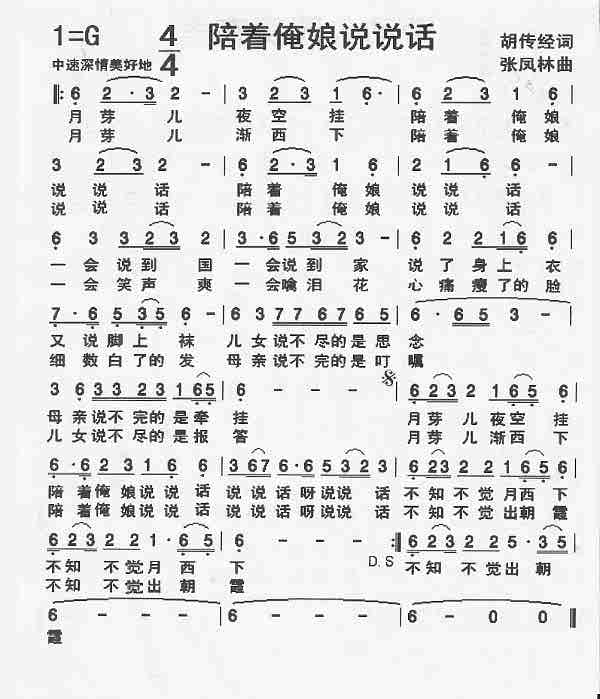 1=G 4/4 陪着俺娘说说话 胡传经词
中速深情美好地 张凤林曲
6 2·3 2 - | 3 2 3 1 6· | 6 2 3 1 6 |
月芽 儿 夜空挂 陪着 俺娘
月芽 儿 渐西下 陪着 俺娘
3 2 3 2 - | 6 2·3 1 6 | 2 1 6 6 - |
说说 话 陪着 俺娘 说说 话
说说 话 陪着 俺娘 说说 话
6 3 3 2 3 2 | 3·6 5 3 2 3 - | 6 2 2 1 6 6 |
一会说到 国 一会说到 家 说了身上 衣
一会笑声 爽 一会噙泪 花 心痛瘦了的 脸
7· 6 5 3 5 6 - | 3 3 7 7 6 7 6 5 | 6· 6 5 3 - |
又说脚上 袜 儿女说不尽的是思 念
细数白了的 发 母亲说不尽的是叮 嘱
3 6 3 3 2 3 1 6 5 | 6 - - - | 6 2 3 2 1 6 5 6 |
母亲说不完的是牵 挂 月芽 儿夜空 挂
儿女说不完的是报 答 月芽 儿渐西 下
6·6 2 3 1 6 6 | 3 6 7 6·6 5 3 2 3 | 6 2 3 2 2 1 6 5 6 |
陪着俺娘说说 话 说说话呀说说 话 不知不觉月西 下
陪着俺娘说说 话 说说话呀说说 话 不知不觉出朝 霞
6 2 3 2 3 1· 6 5 | 6 - - - | 6 2 3 2 2 5· 3 5 |
不知 不觉月 西 下 D.S 不知 不觉出 朝
不知 不觉出 朝 霞
6 - - - | 6 - - - | 6 - 0 0 ‖
霞